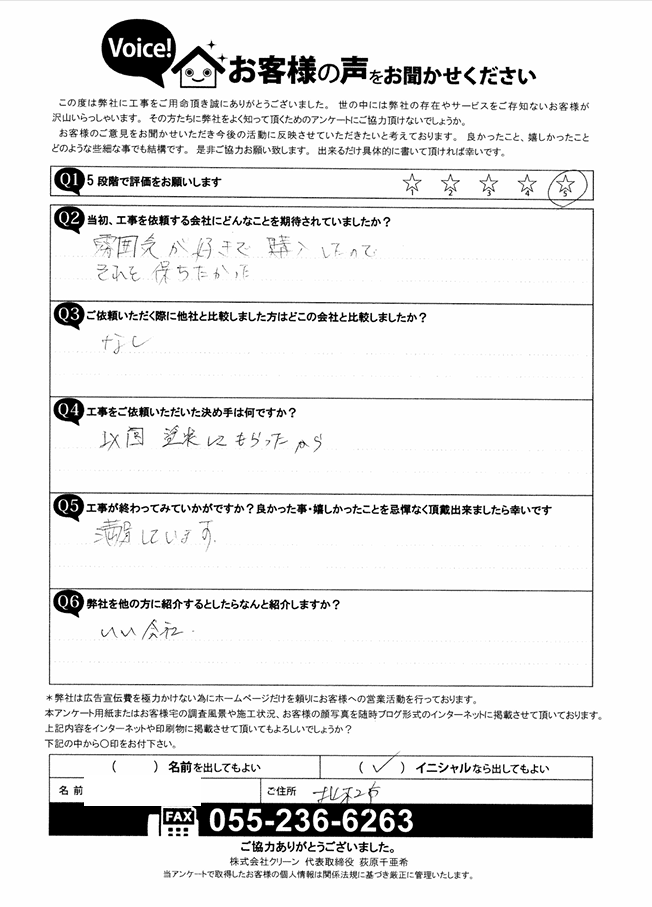 Voice!
お客様の声をお聞かせください
この度は弊社に工事をご用命頂き誠にありがとうございました。 世の中には弊社の存在やサービスをご存知ないお客様が
沢山いらっしゃいます。 その方たちに弊社をよく知って頂くためのアンケートにご協力頂けないでしょうか。
お客様のご意見をお聞かせいただき今後の活動に反映させていただきたいと考えております。 良かったこと、嬉しかったこと
どのような些細な事でも結構です。 是非ご協力お願い致します。 出来るだけ具体的に書いて頂ければ幸いです。
Q1 5段階で評価をお願いします
1 2 3 4 5
Q2 当初、工事を依頼する会社にどんなことを期待されていましたか?
雰囲気が好きで購入したので
それを保ちたかった
Q3 ご依頼いただく際に他社と比較しました方はどこの会社と比較しましたか?
なし
Q4 工事をご依頼いただいた決め手は何ですか?
以前塗装してもらったから
Q5 工事が終わってみていかがですか?良かった事・嬉しかったことを忌憚なく頂戴出来ましたら幸いです
満足しています.
Q6 弊社を他の方に紹介するとしたらなんと紹介しますか?
いい会社.
*弊社は広告宣伝費を極力かけない為にホームページだけを頼りにお客様への営業活動を行っております。
本アンケート用紙またはお客様宅の調査風景や施工状況、お客様の顔写真を随時ブログ形式のインターネットに掲載させて頂いております。
上記内容をインターネットや印刷物に掲載させて頂いてもよろしいでしょうか?
下記の中から○印をお付下さい。
( ) 名前を出してもよい ( ✓ ) イニシャルなら出してもよい
名前 ご住所 北杜市
FAX 055-236-6263
ご協力ありがとうございました。
株式会社クリーン 代表取締役 荻原千亜希
当アンケートで取得したお客様の個人情報は関係法規に基づき厳正に管理いたします。